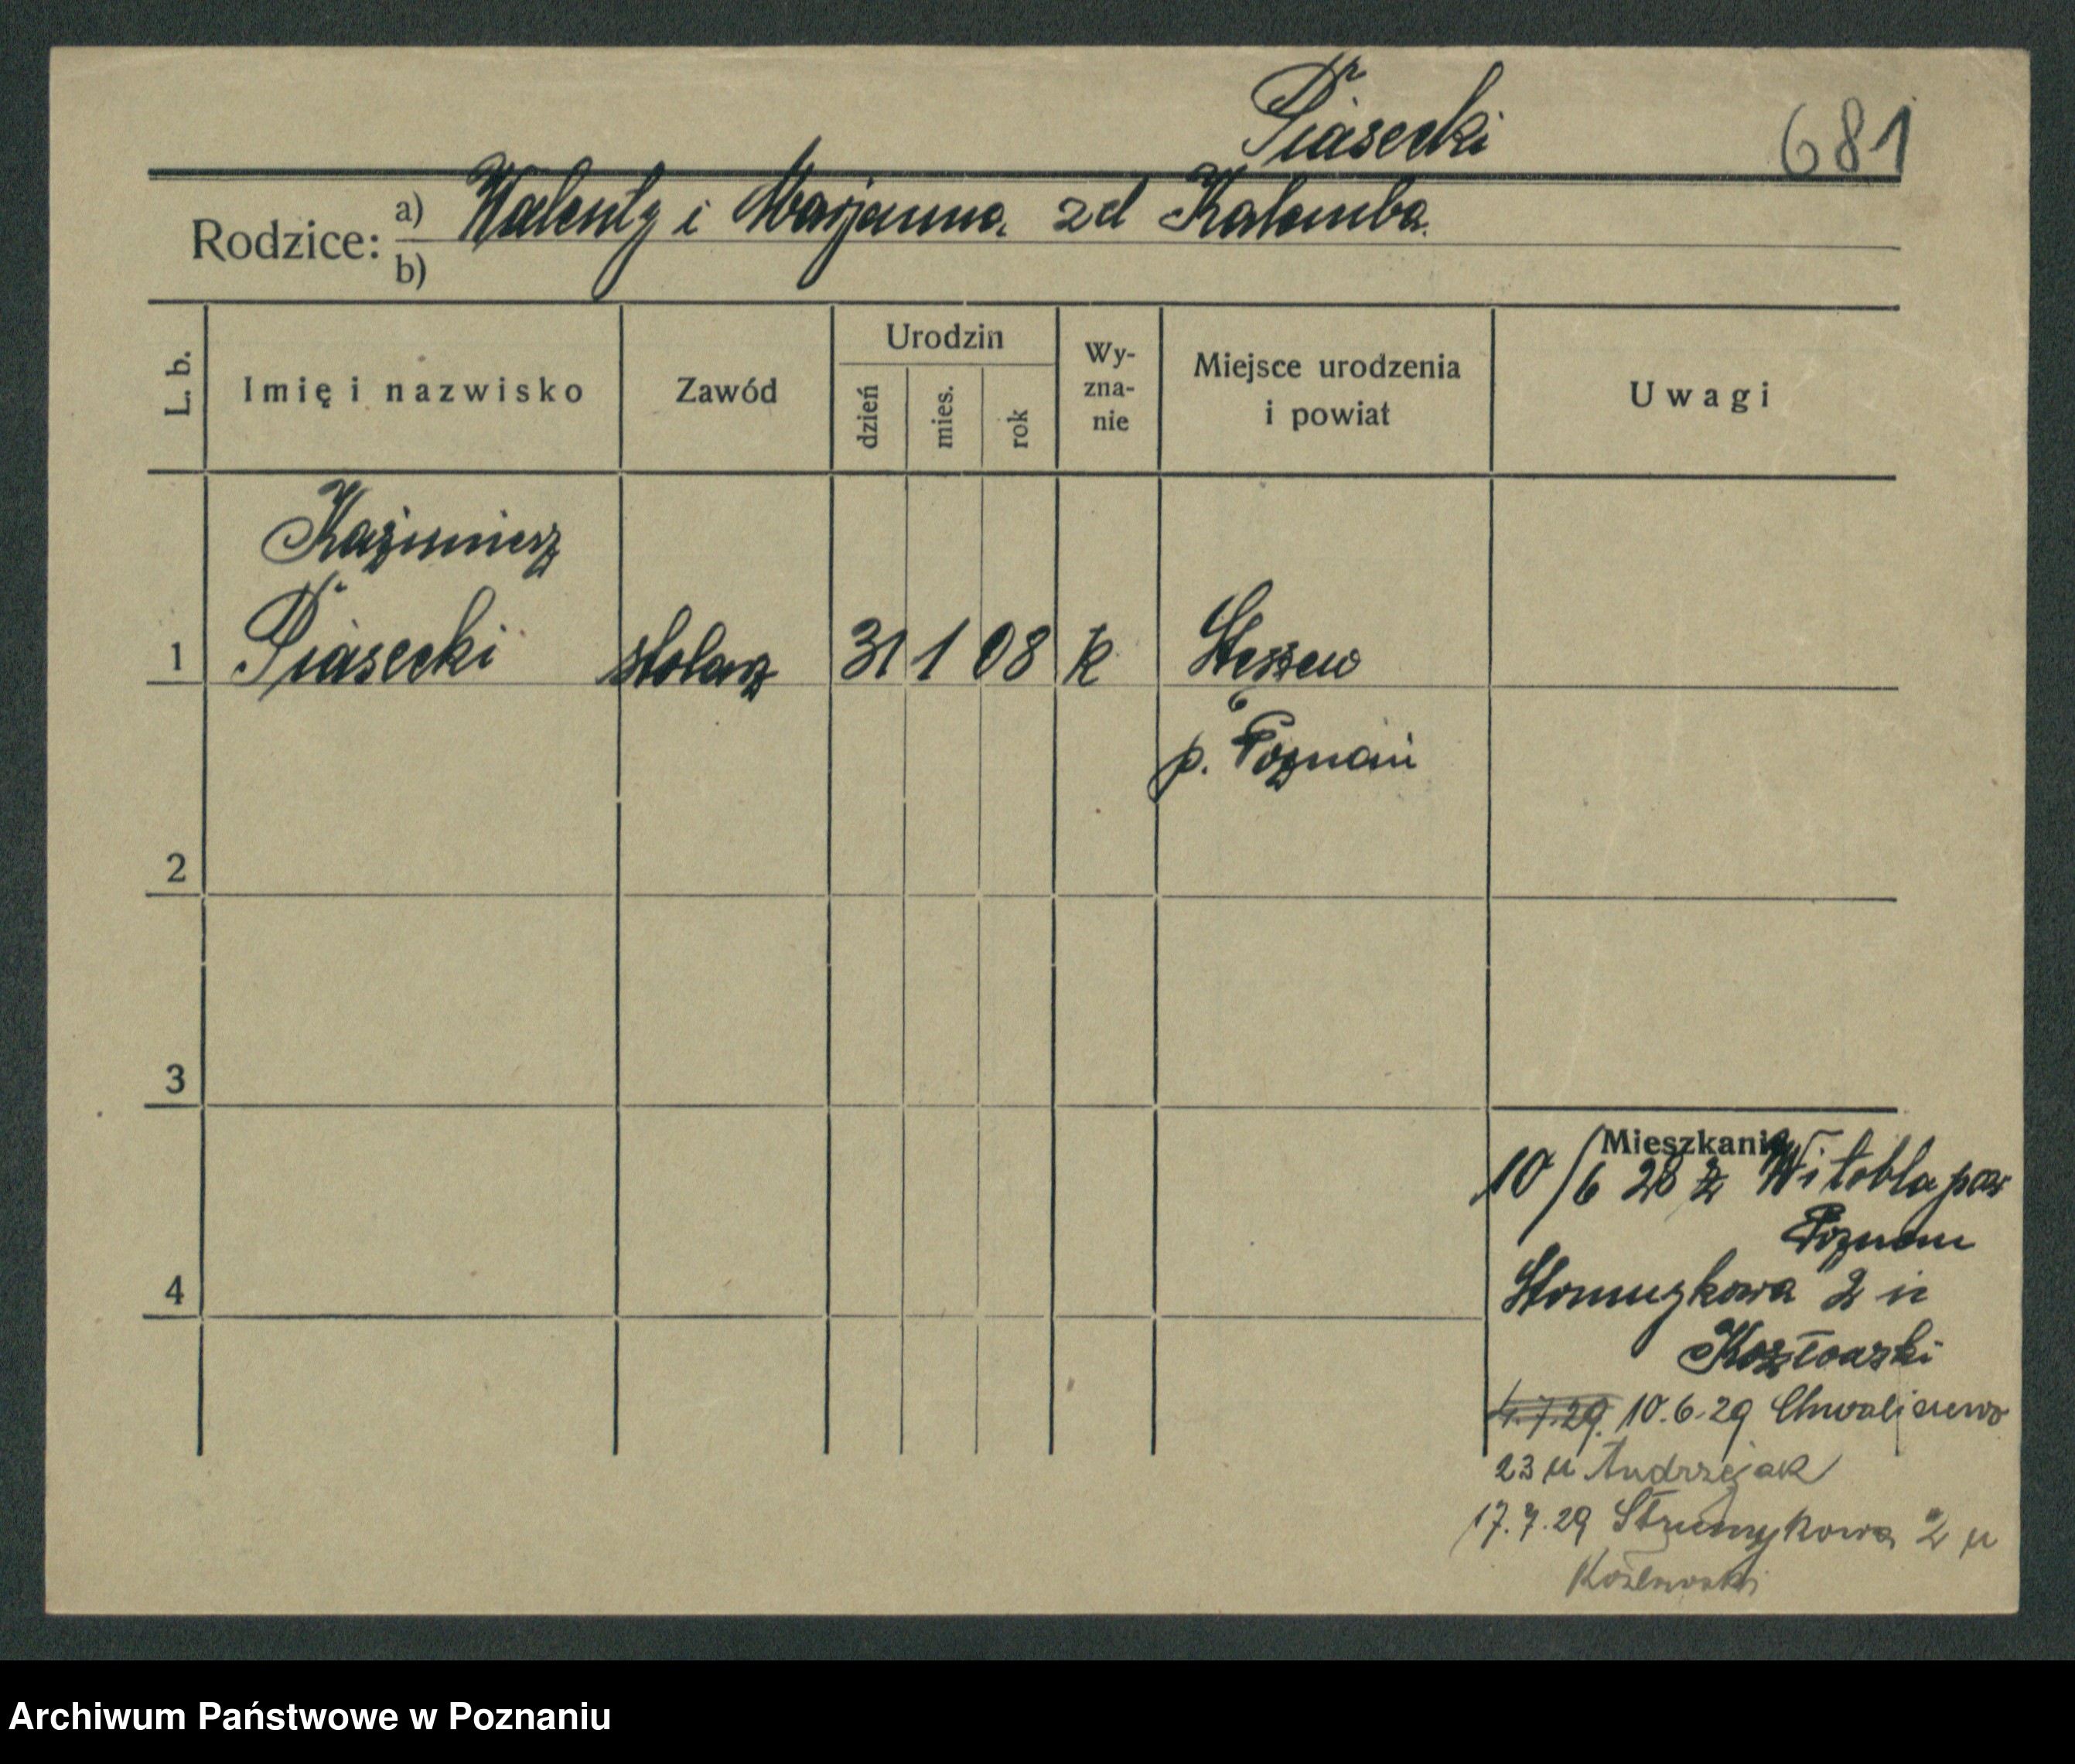 Piasecki
681
Rodzice: a) Walenty i Marjanna zd Katamba
b)
L. b. Imię i nazwisko Zawód Urodzin dzień mies. rok Wyznanie Miejsce urodzenia i powiat Uwagi
Kazimierz
1 Piasecki stolarz 31 1 08 k Stęszew
p. Poznań
2
3
Mieszkanie
10/6 28 z Witobla pow
Poznań
4
Strumykowa 2 u
Kozłowski
4.7.29. 10.6.29 Chwaliszewo
23 u Andrzejak
17.7.29 Strumykowa 2 u
Kozłowski
Archiwum Państwowe w Poznaniu